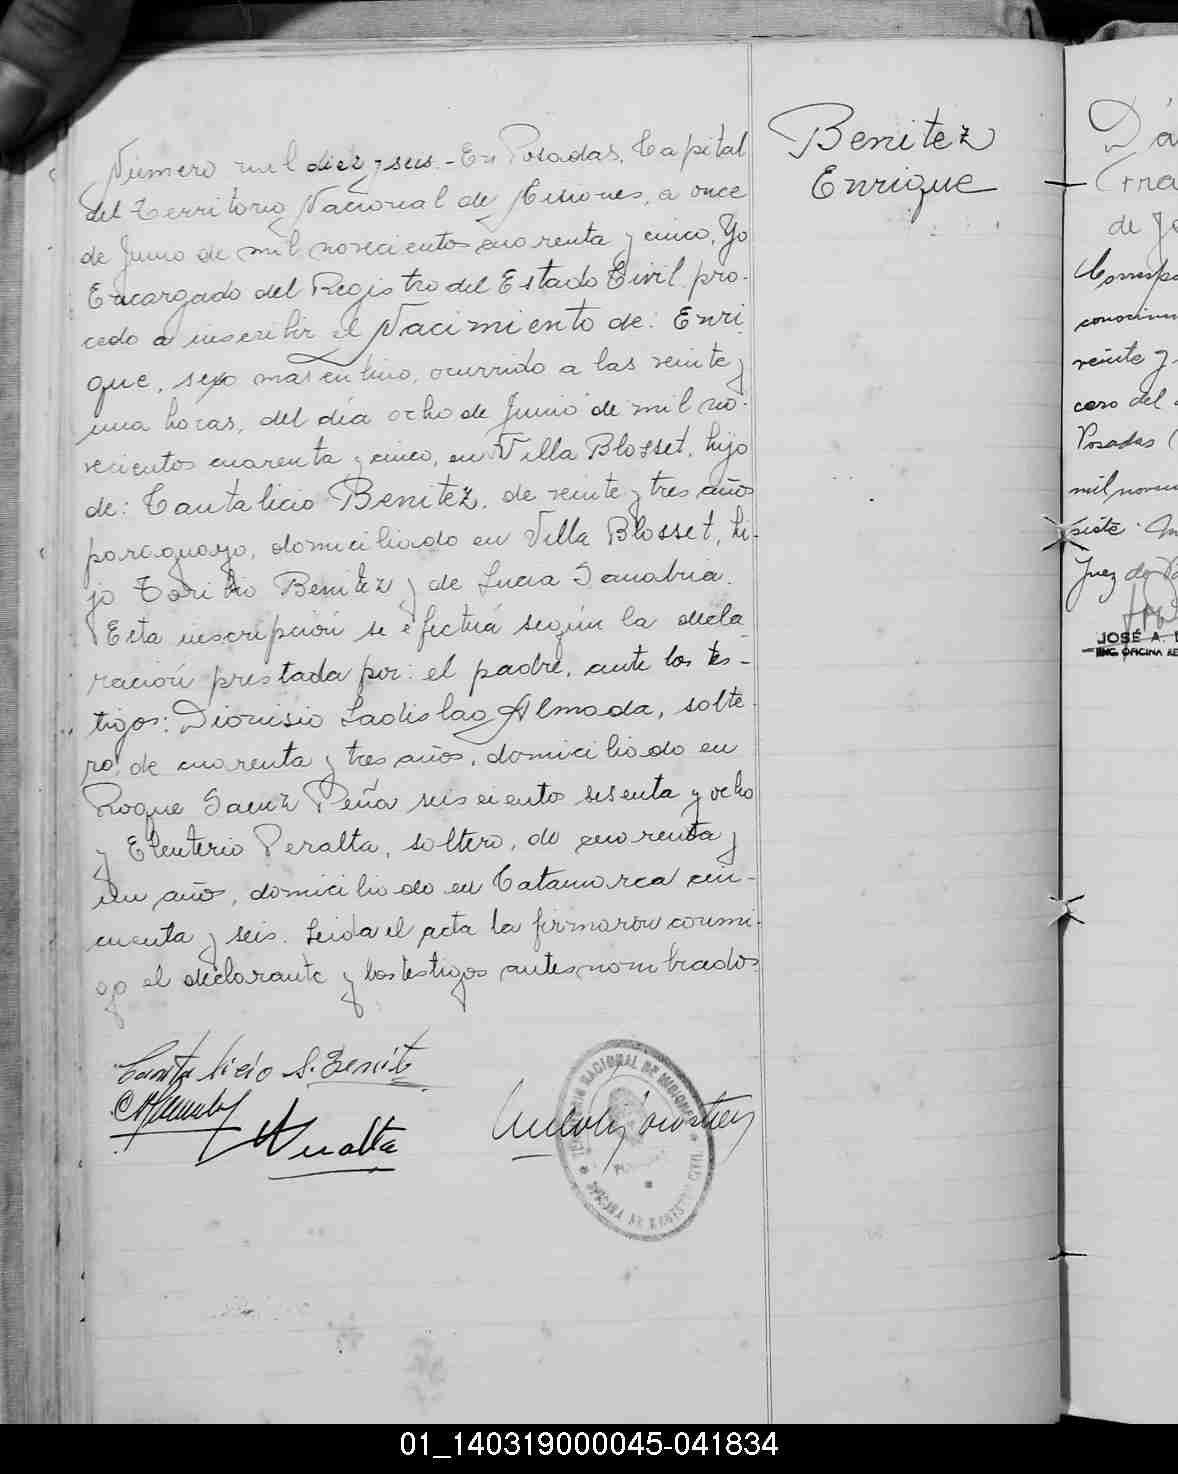 Benitez
Enrique
Número mil diez y seis.- En Posadas, Capital
del Territorio Nacional de Misiones, a once
de Junio de mil novecientos cuarenta y cinco, Yo
Encargado del Registro del Estado Civil pro-
cedo a inscribir el Nacimiento de: Enri
que, sexo masculino, ocurrido a las veinte y
una horas, del día ocho de Junio de mil no-
vecientos cuarenta y cinco, en Villa Blosset, hijo
de: Cantalicio Benitez, de veinte y tres años
paraguayo, domiciliado en Villa Blosset, hi-
jo Toribio Benitez y de Lucia Sanabria.
Esta inscripción se efectúa según la decla
ración prestada por: el padre, ante los tes-
tigos: Dionisio Ladislao Almada, solte
ro, de cuarenta y tres años, domiciliado en
Roque Saenz Peña seiscientos sesenta y ocho
y Eleuterio Peralta, soltero, de cuarenta y
un año, domiciliado en Catamarca cin-
cuenta y seis. Leida el acta la firmaron conmi-
go el declarante y los testigos antes nombrados
Cantalicio S. Benite
Peralta
TERRITORIO NACIONAL DE MISIONES
OFICINA DE REGISTRO CIVIL
de
conocimi
veinte y
caso del
Posadas
mil novec
siete
Juez de
JOSÉ A.
ENC. OFICINA RE
01_140319000045-041834